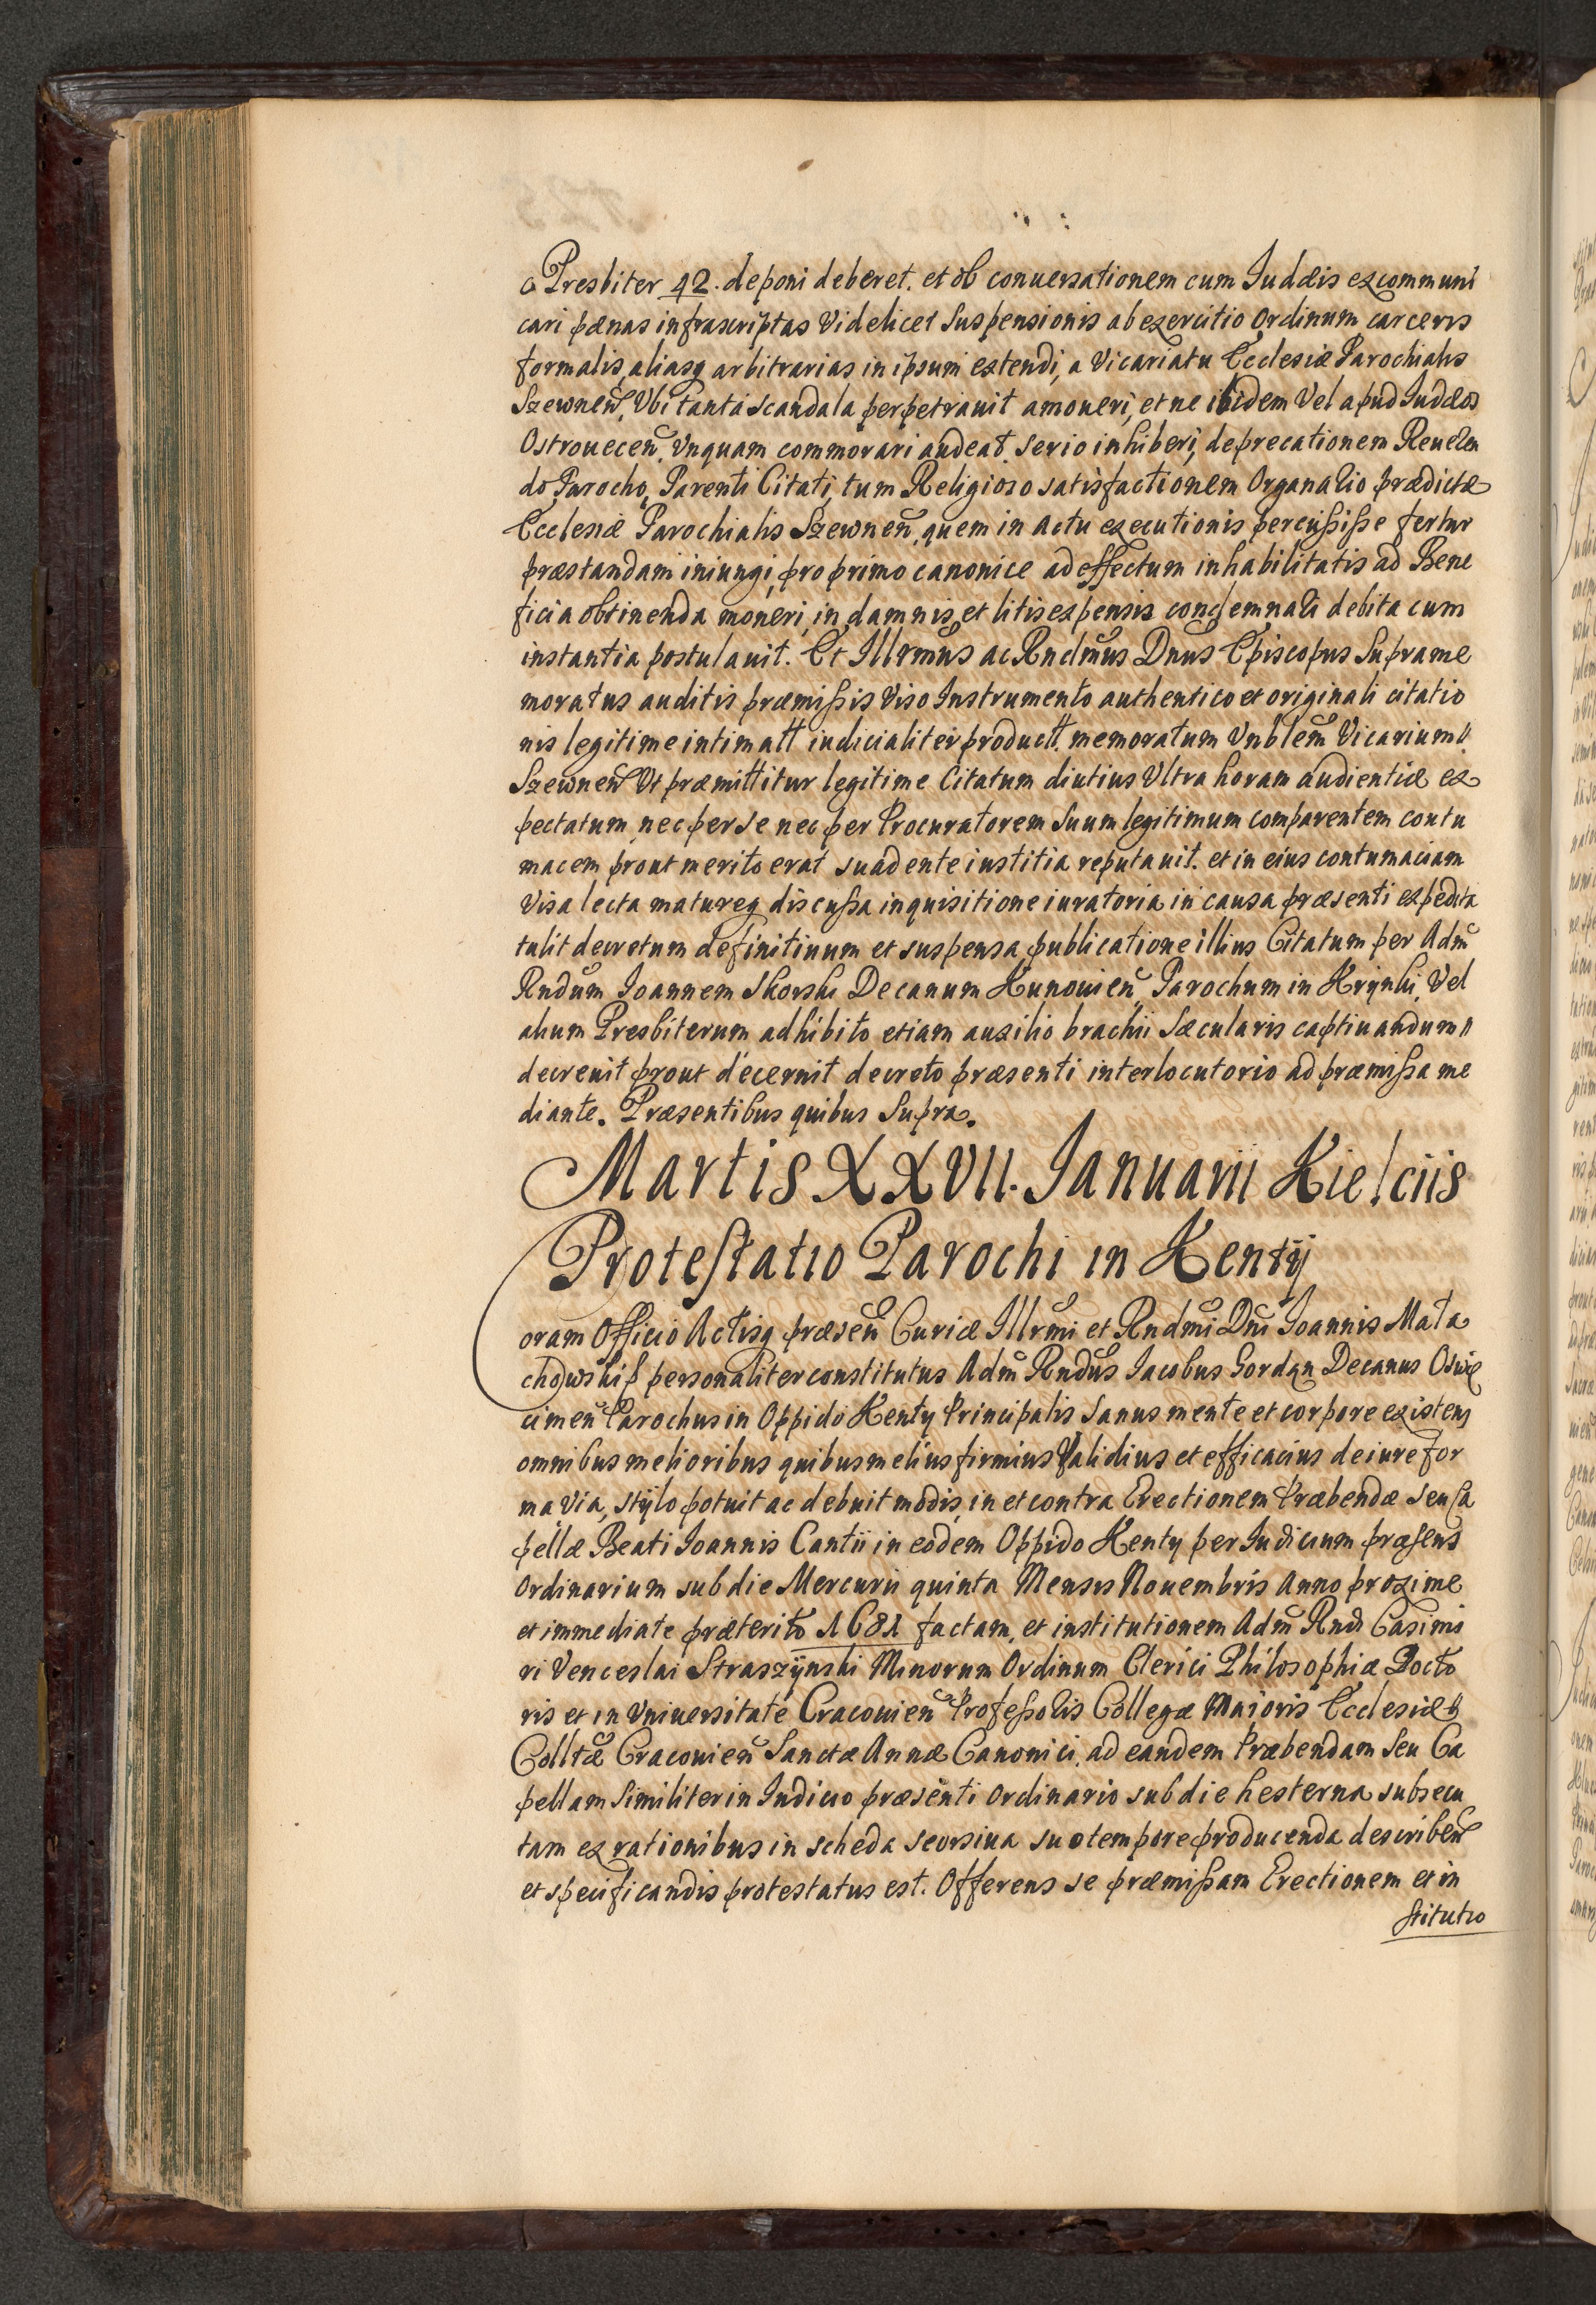 Presbiter 42. deponi deberet. et ob conuersationem cum Iudæis excommuni
cari pœnas infrascriptas Videlicet Suspensionis ab exercitio Ordinum carceris
formalis, aliasq arbitrarias in ipsum extendi, a Vicariatu Ecclesiæ Parochialis
Szewnen̄, Vbi tanta scandala perpetrauit amoueri, et ne ibidem Vel apud Iudæos
Ostrouecen̄. Vnquam commorari audeat. serio inhiberi, deprecationem Reueren
do Parocho, Parenti Citati, tum Religioso satisfactionem Organario prædictæ
Ecclesiæ Parochialis Szewnen̄, quem in actu executionis percussisse fertur
præstandam iniungi, pro primo canonice ad effectum inhabilitatis ad Bene
ficia obtinenda moneri, in damnis, et litis expensis condemnari debita cum
instantia postulauit. Et Illrmus ac Rndmus Dnus Episcopus Suprame
moratus auditis præmissis Viso Instrumento authentico et originali citatio
nis legitime intimatt iudicialiter productt. memoratum Vnblem̄ Vicarium
Szewnen̄ Vt præmittitur legitime Citatum diutius Vltra horam audientiæ ex
pectatum, nec per se nec per Procuratorem Suum legitimum comparentem contu
macem prout merito erat suadente iustitia reputauit. et in eius contumaciam
Visa lecta matureq discussa inquisitione iuratoria in causa præsenti expedita
tulit decretum definitiuum et suspensa publicatione illius Citatum per Adm̄
Rndum Ioannem Skorski Decanum Kunouien̄, Parochum in Krynki, Vel
alium Presbiterum adhibito etiam auxilio brachii Sæcularis captiuandum
decreuit prout decernit decreto præsenti interlocutorio ad præmissa me
diante. Præsentibus quibus Supra.
Martis XXVII. Ianuarii Kielciis
Protestatio Parochi in Kenty
Coram Officio Actisq præsen̄ Curiæ Illrmi et Rndmi Dni Ioannis Mała
chowski personaliter constitutus Adm̄ Rndus Iacobus Gordan Decanus Oswie
cimen̄ Parochus in Oppido Kenty Principalis Sanus mente et corpore existens
omnibus melioribus quibus melius firmius Validius et efficacius de iure for
ma Via, stylo potuit ac debuit modis, in et contra Erectionem Præbendæ seu Ca
pellæ Beati Ioannis Cantii in eodem Oppido Kenty per Iudicium præsens
Ordinarium sub die Mercurii quinta Mensis Nouembris Anno proxime
et immediate præterito 1681 factam, et institutionem Adm̄ Rndi Casimi
ri Venceslai Straszynski Minorum Ordinum Clerici Philosophiæ Docto
ris et in Vniuersitate Cracouien̄ Professoris Collegæ Maioris Ecclesiæ
Colltæ Cracouien̄ Sanctæ Annæ Canonici, ad eandem Præbendam Seu Ca
pellam Similiter in Iudicio præsenti Ordinario sub die hesterna subsecu
tam ex rationibus in scheda seorsiua suo tempore producenda describen̄
et specificandis protestatus est. Offerens se præmissam Erectionem et in
stitutio